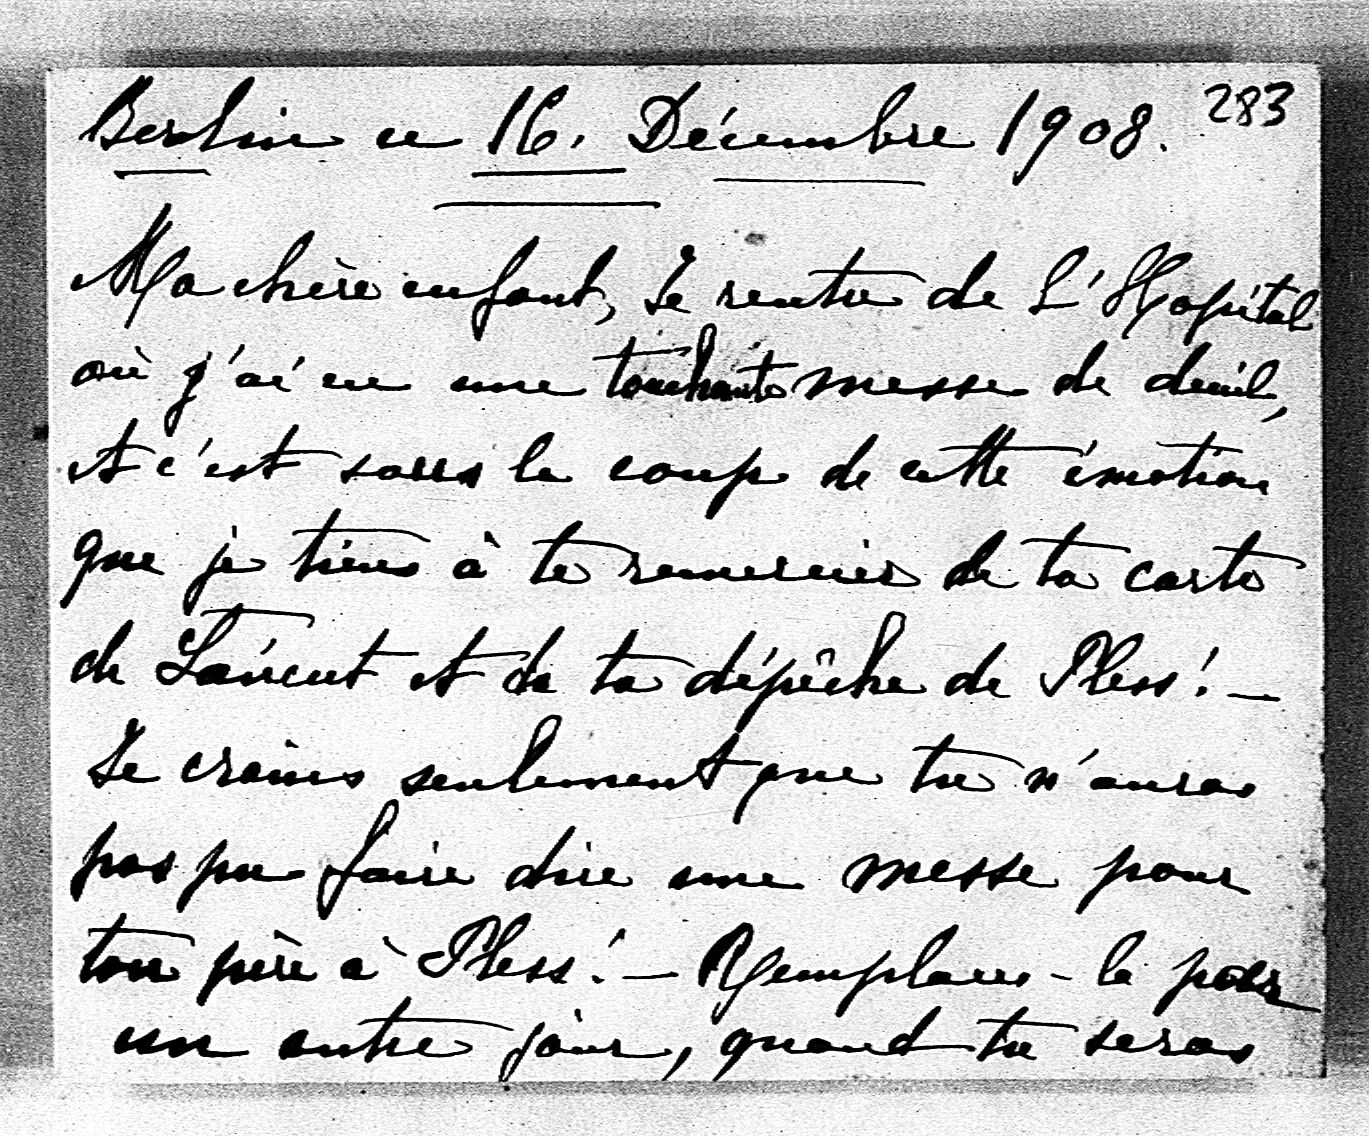 Berlin ce 16. Décembre 1908. 283
Ma chère enfant, Je rentre de L'Hopital
où j'ai eu une touchante messe de deuil,
et c'est sous le coup de cette émotion
que je tiens à te remercier de ta carte
de Lancut et de ta dépêche de Pless! —
Je crains seulement que tu n'auras
pas pu faire dire une messe pour
ton père à Pless! — Remplaces-la pour
un autre jour, quand tu seras